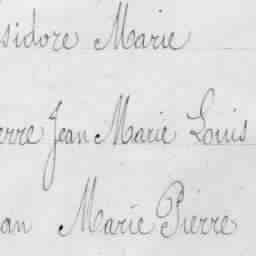 sidore Marie
erre Jean Marie Louis
an Marie Pierre